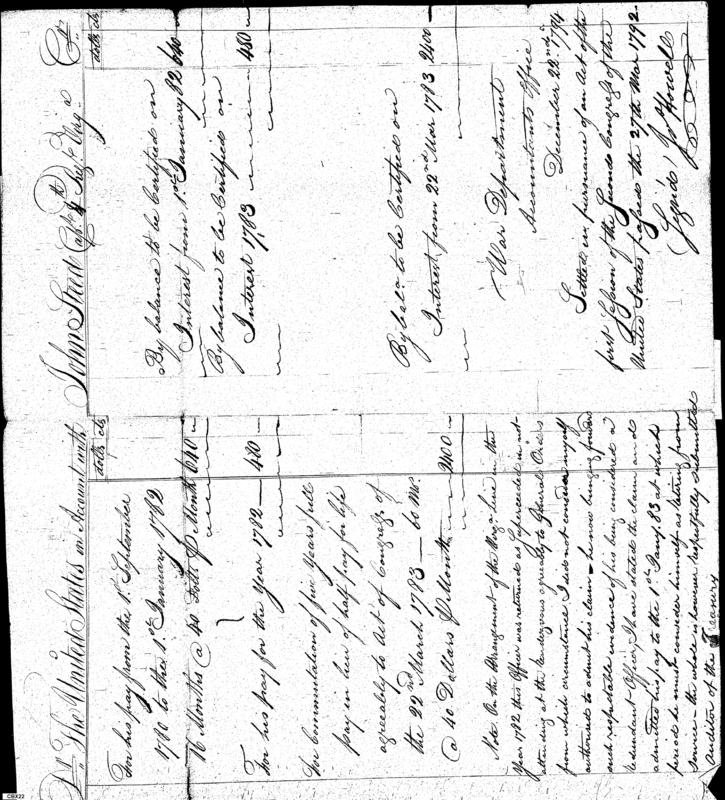 Dr. The United States in Account with John Steed Capt. 4th Regt. Virga. Cr.
dolls cts
For his pay from the 1st. September
1780 to the 1st. January 1782
16 Months @ 40 Dolls P Month 640
For his pay for the Year 1782 480
For Commutation of five Years full
pay in lieu of half pay for life
agreeably to Act of Congress of
the 22nd March 1783 — 60 Mo.
@ 40 Dollars P Month 2400
Note. On the Arrangement of the Virga. line in the
Year 1782 this Officer was returned as Superceeded in not
attending at the Rendezvous agreeably to General Orders
from which circumstance I did not conceive myself
authorised to admit his claim — he now bringing forward
such reputable evidence of his being considered a
redundant Officer, I have stated the claim and
admitted his pay to the 1st Jany. 83 at which
period he must consider himself as retiring from
Service — the whole is however respectfully submitted
Auditor of the Treasury
dolls cts
By balance to be Certified on
Interest from 1st. January 82 640
By balance to be Certified on
Interest 1783 480
By bala. to be Certified on
Interest from 22nd Mar 1783 2400
War Department
Accountants Office
December 22nd. 1794
Settled in pursuance of an Act of the
first Session of the Second Congress of the
United States passed the 27th Mar 1792.
Signed Js Howell
CBX22